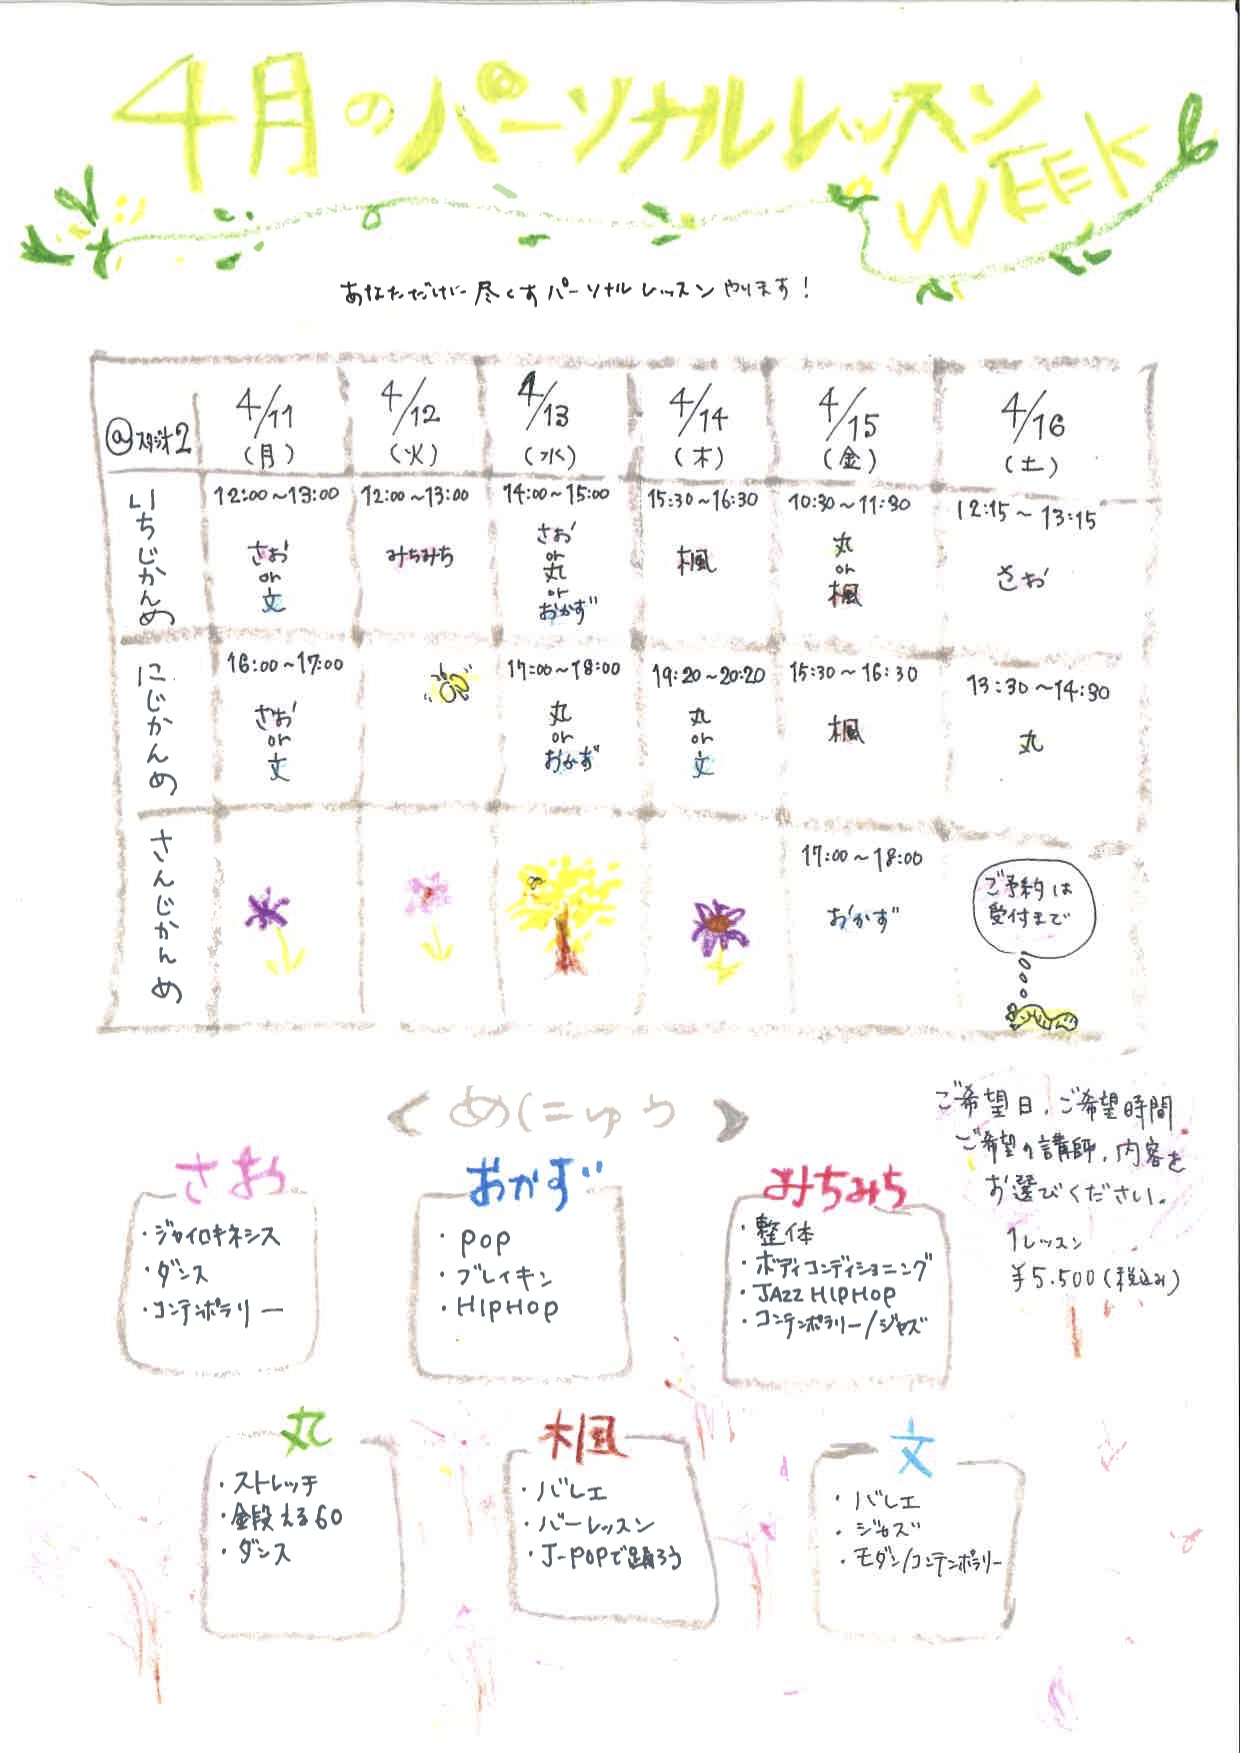 4月のパーソナルレッスン
WEEK
あなただけに尽くすパーソナルレッスンやります!
@スタジオ2
4/11
(月)
4/12
(火)
4/13
(水)
4/14
(木)
4/15
(金)
4/16
(土)
いちじかんめ
12:00~13:00
さお
or
文
12:00~13:00
みちみち
14:00~15:00
さお
or
丸
or
おかず
15:30~16:30
楓
10:30~11:30
丸
or
楓
12:15~13:15
さお
にじかんめ
16:00~17:00
さお
or
文
17:00~18:00
丸
or
おかず
19:20~20:20
丸
or
文
15:30~16:30
楓
13:30~14:30
丸
さんじかんめ
17:00~18:00
おかず
ご予約は
受付まで
<めにゅう>
ご希望日、ご希望時間
ご希望の講師、内容を
お選びください。
1レッスン
¥5.500(税込み)
さお
・ジャイロキネシス
・ダンス
・コンテンポラリー
おかず
・POP
・ブレイキン
・HIPHOP
みちみち
・整体
・ボディコンディショニング
・JAZZ HIPHOP
・コンテンポラリー/ジャズ
丸
・ストレッチ
・鍛える60
・ダンス
楓
・バレエ
・バーレッスン
・J-POPで踊ろう
文
・バレエ
・ジャズ
・モダン/コンテンポラリー